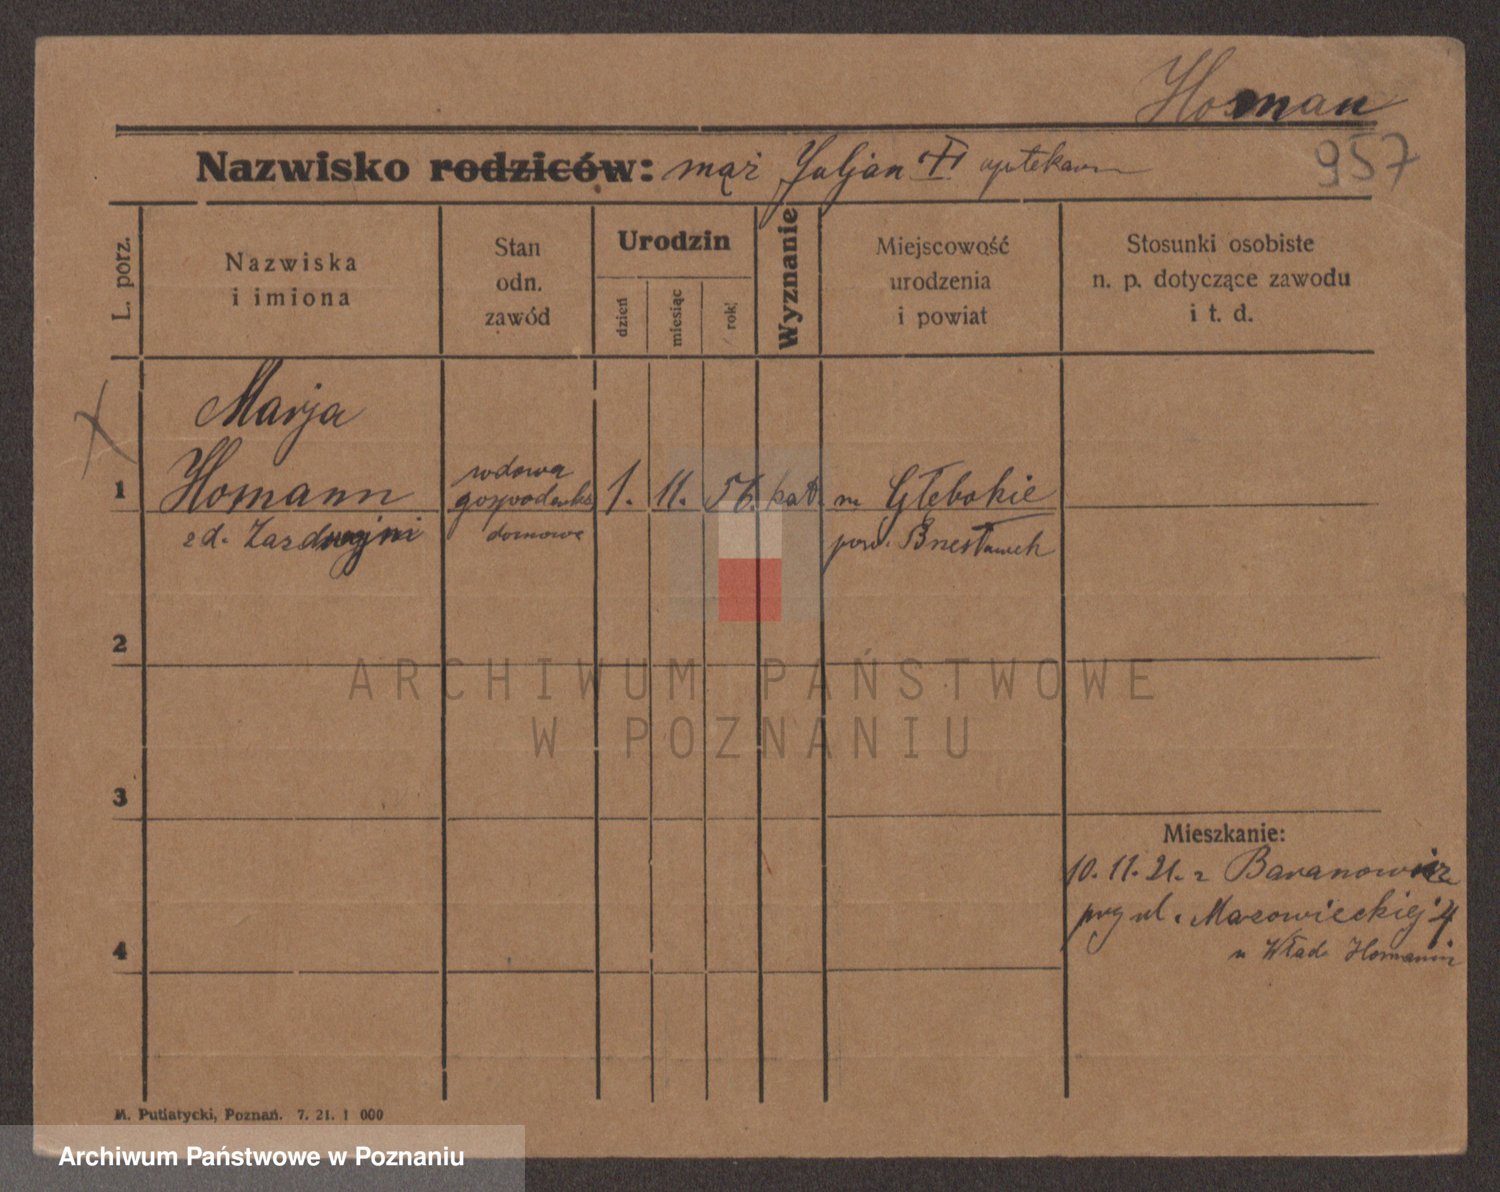 Homan
957
Nazwisko rodziców: mąż Juljan † aptekarz
L. porz.
Nazwiska
i imiona
Stan
odn.
zawód
Urodzin
dzień
miesiąc
rok
Wyznanie
Miejscowość
urodzenia
i powiat
Stosunki osobiste
n. p. dotyczące zawodu
i t. d.
Marja
1 Homann
z d.
wdowa
domowe
1. 11. 56. kat. Głębokie
pow.
2
3
4
Mieszkanie:
10. 11. 21. z
ul. Mazowieckiej 4
u Wład.
M. Putiatycki, Poznań. 7. 21. 1 000
ARCHIWUM PAŃSTWOWE
W POZNANIU
Archiwum Państwowe w Poznaniu